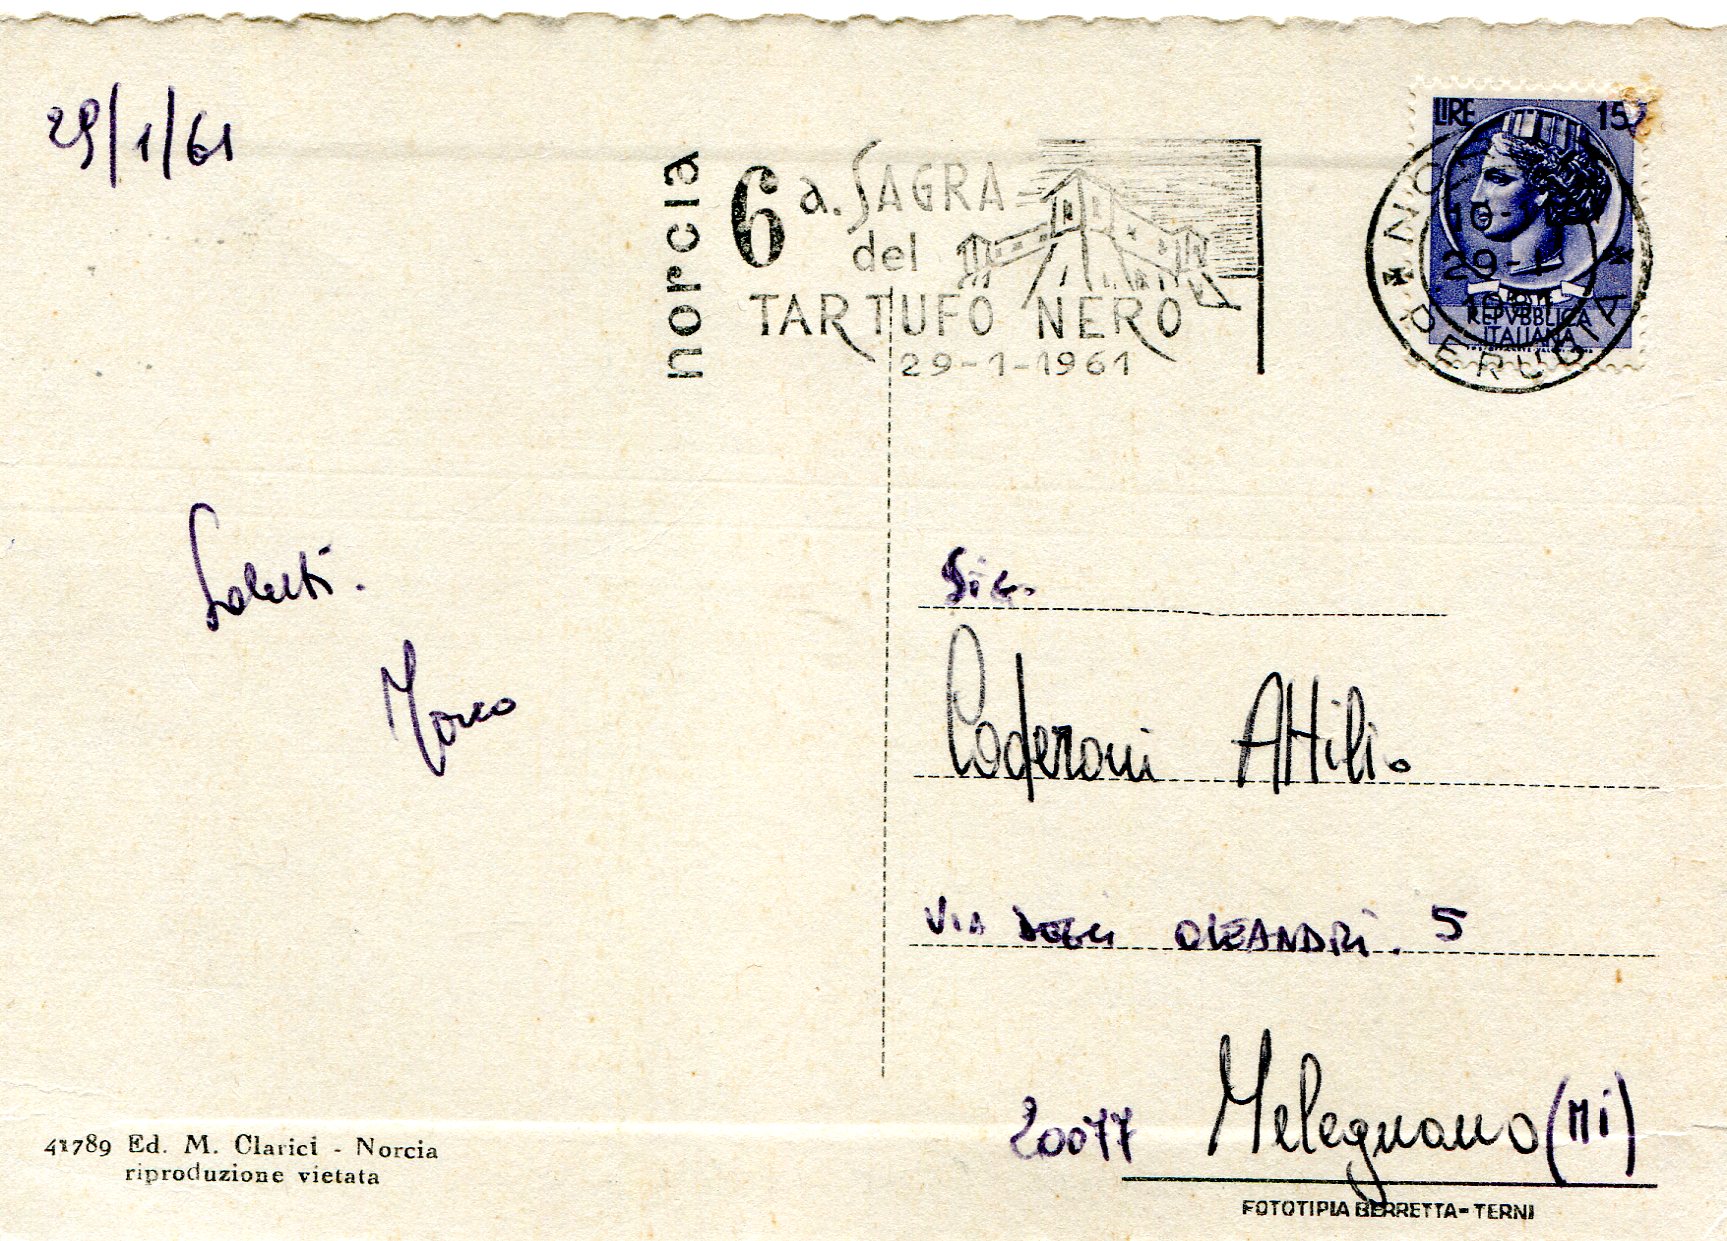 29/1/61
norcia
6a. SAGRA
del
TARTUFO NERO
29-1-1961
LIRE 15
NORCIA
PERUGIA
29-1
POSTE
REPVBBLICA
ITALIANA
Saluti.
Marco
Sig.
Caderoni Attilio
VIA DEGLI OLEANDRI. 5
20077 Melegnano (MI)
41789 Ed. M. Clarici - Norcia
riproduzione vietata
FOTOTIPIA BERRETTA-TERNI